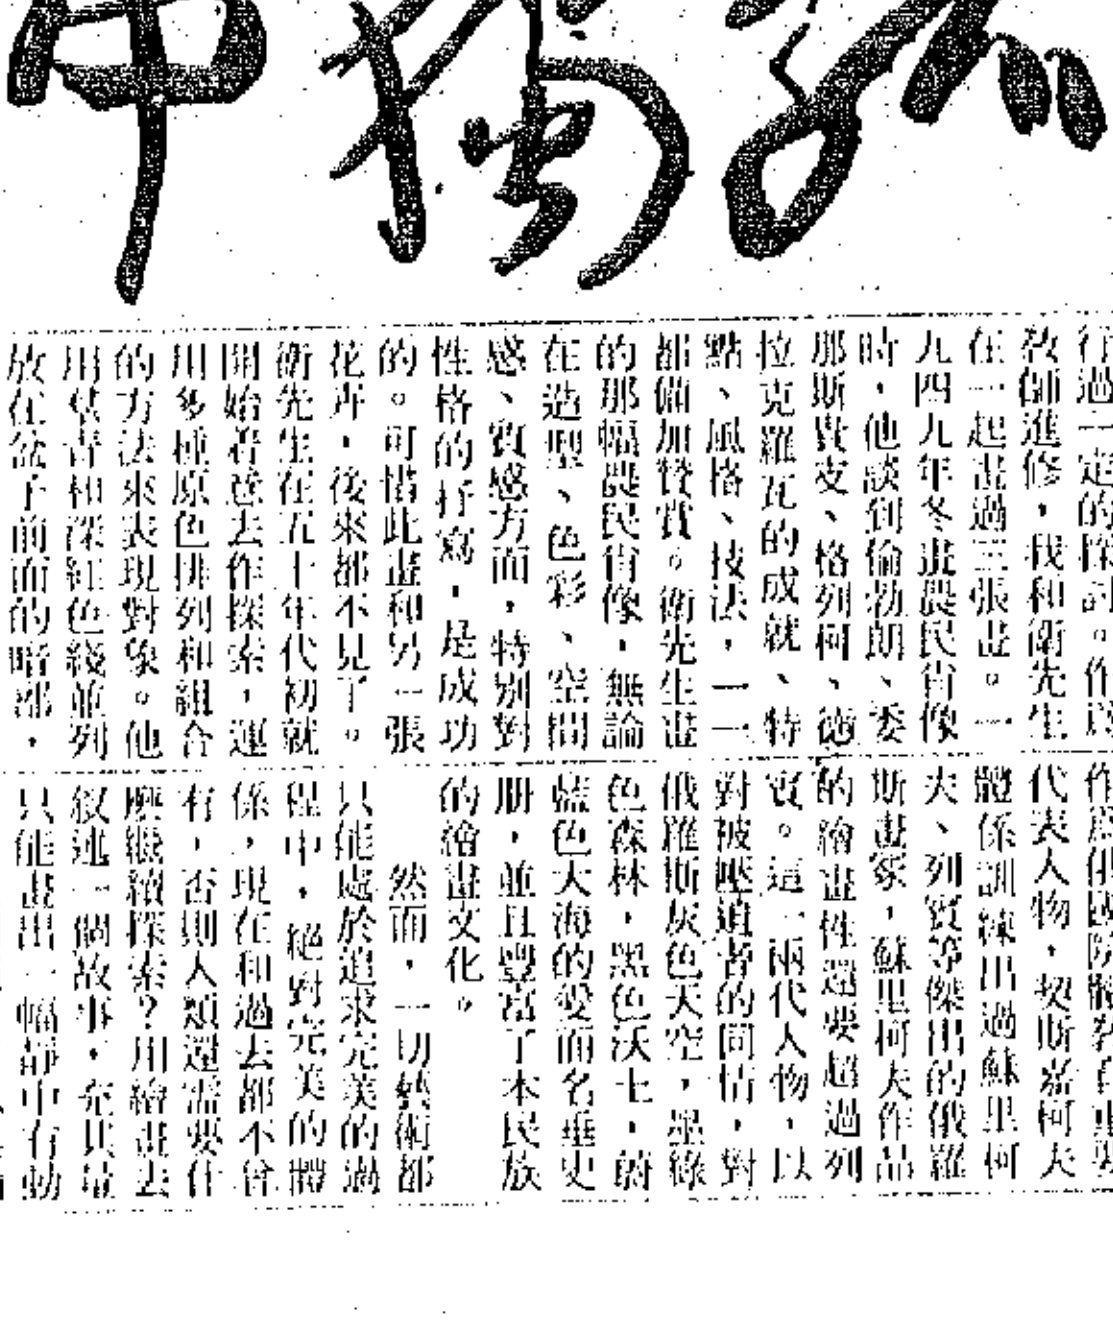 孤獨中
行過一定的探討。作爲
教師進修，我和衛先生
在一起畫過三張畫。一
九四九年冬畫農民肖像
時，他談到倫勃朗、委
那斯貴支、格列柯、德
拉克羅瓦的成就、特
點、風格、技法，一一
都備加贊賞。衛先生畫
的那幅農民肖像，無論
在造型、色彩、空間
感、質感方面，特別對
性格的抒寫，是成功
的。可惜此畫和另一張
花卉，後來都不見了。
衛先生在五十年代初就
開始着意去作探索，運
用多種原色排列和組合
的方法來表現對象。他
用草青和深紅色綫並列
放在盆子前面的暗部，
代表人物，契斯嘉柯夫
體係訓練出過蘇里柯
夫、列賓等傑出的俄羅
斯畫家，蘇里柯夫作品
的繪畫性還要超過列
賓。這一兩代人物，以
對被壓迫者的同情，對
俄羅斯灰色天空，墨綠
色森林，黑色沃土，蔚
藍色大海的愛而名垂史
册，並且豐富了本民族
的繪畫文化。
然而，一切藝術都
只能處於追求完美的過
程中，絕對完美的體
係，現在和過去都不曾
有，否則人類還需要什
麽繼續探索？用繪畫去
叙述一個故事，充其量
只能畫出一幅靜中有動